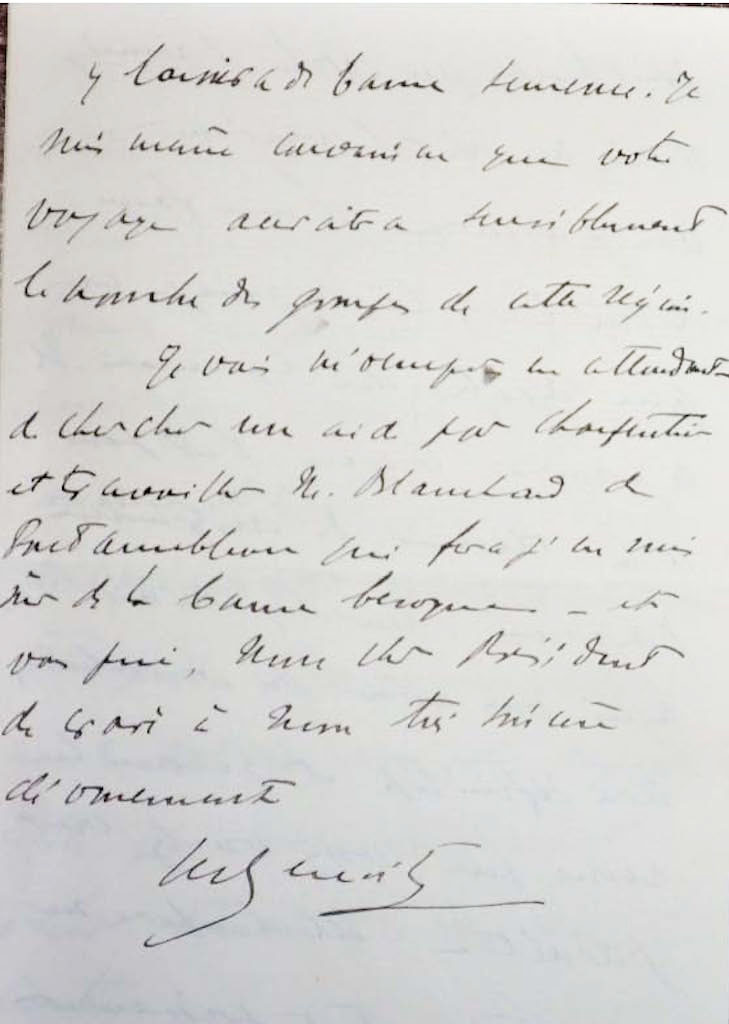 y laissera de bonne semence. Je
suis même convaincu que votre
voyage accroitra sensiblement
le nombre des groupes de cette région.
Je vais m'occuper en attendant
de chercher un aide pour Charpentier
et travailler M. Blanchard de
qui fera j'en suis
sûr de la bonne besogne _ et
vous prie, mon cher Président
de croire à mon très sincère
dévouement